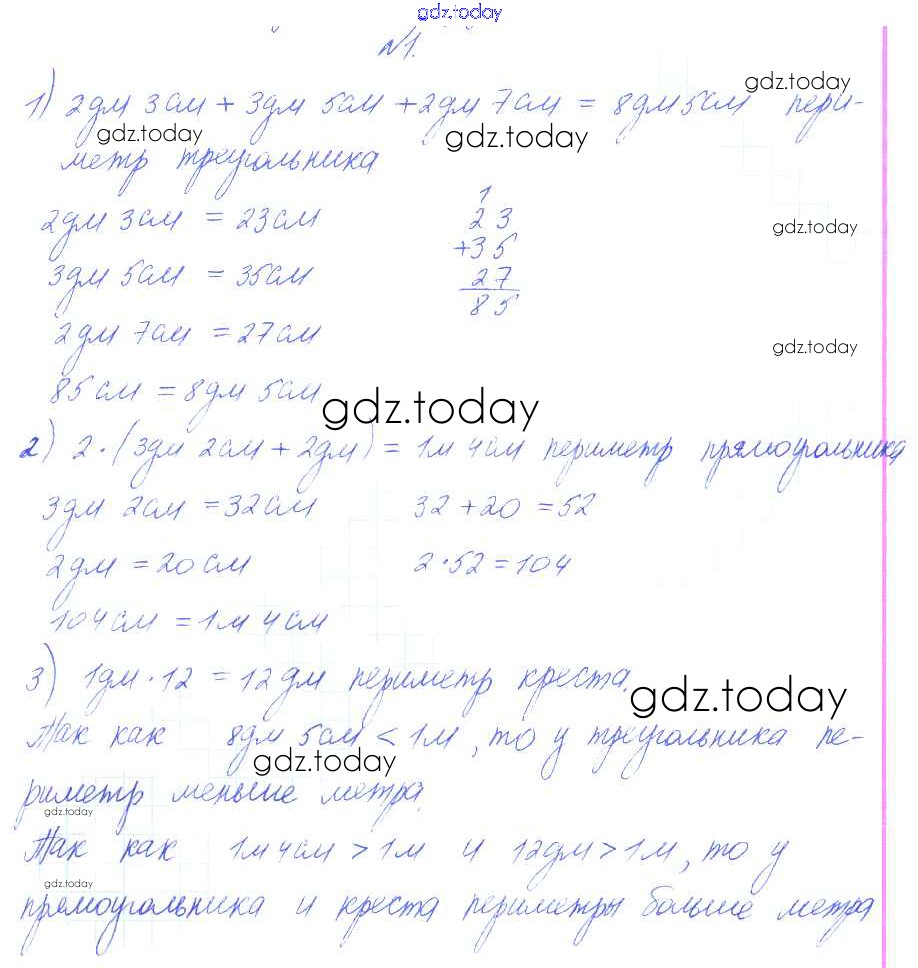 gdz.today
№1.
gdz.today
1) 2дм 3см + 3дм 5см + 2дм 7см = 8дм 5см пери-
gdz.today gdz.today
метр треугольника
2дм 3см = 23см
1
23
+35
27
85
gdz.today
3дм 5см = 35см
2дм 7см = 27см
gdz.today
85см = 8дм 5см
gdz.today
2) 2·(3дм 2см + 2дм) = 1м 4см периметр прямоугольника
3дм 2см = 32см 32+20=52
2дм = 20см 2·52=104
104см = 1м 4см
3) 1дм·12 = 12дм периметр креста.
gdz.today
Так как 8дм 5см < 1м, то у треугольника пе-
gdz.today
риметр меньше метра.
gdz.today
Так как 1м 4см > 1м и 12дм > 1м, то у
gdz.today
прямоугольника и креста периметры больше метра